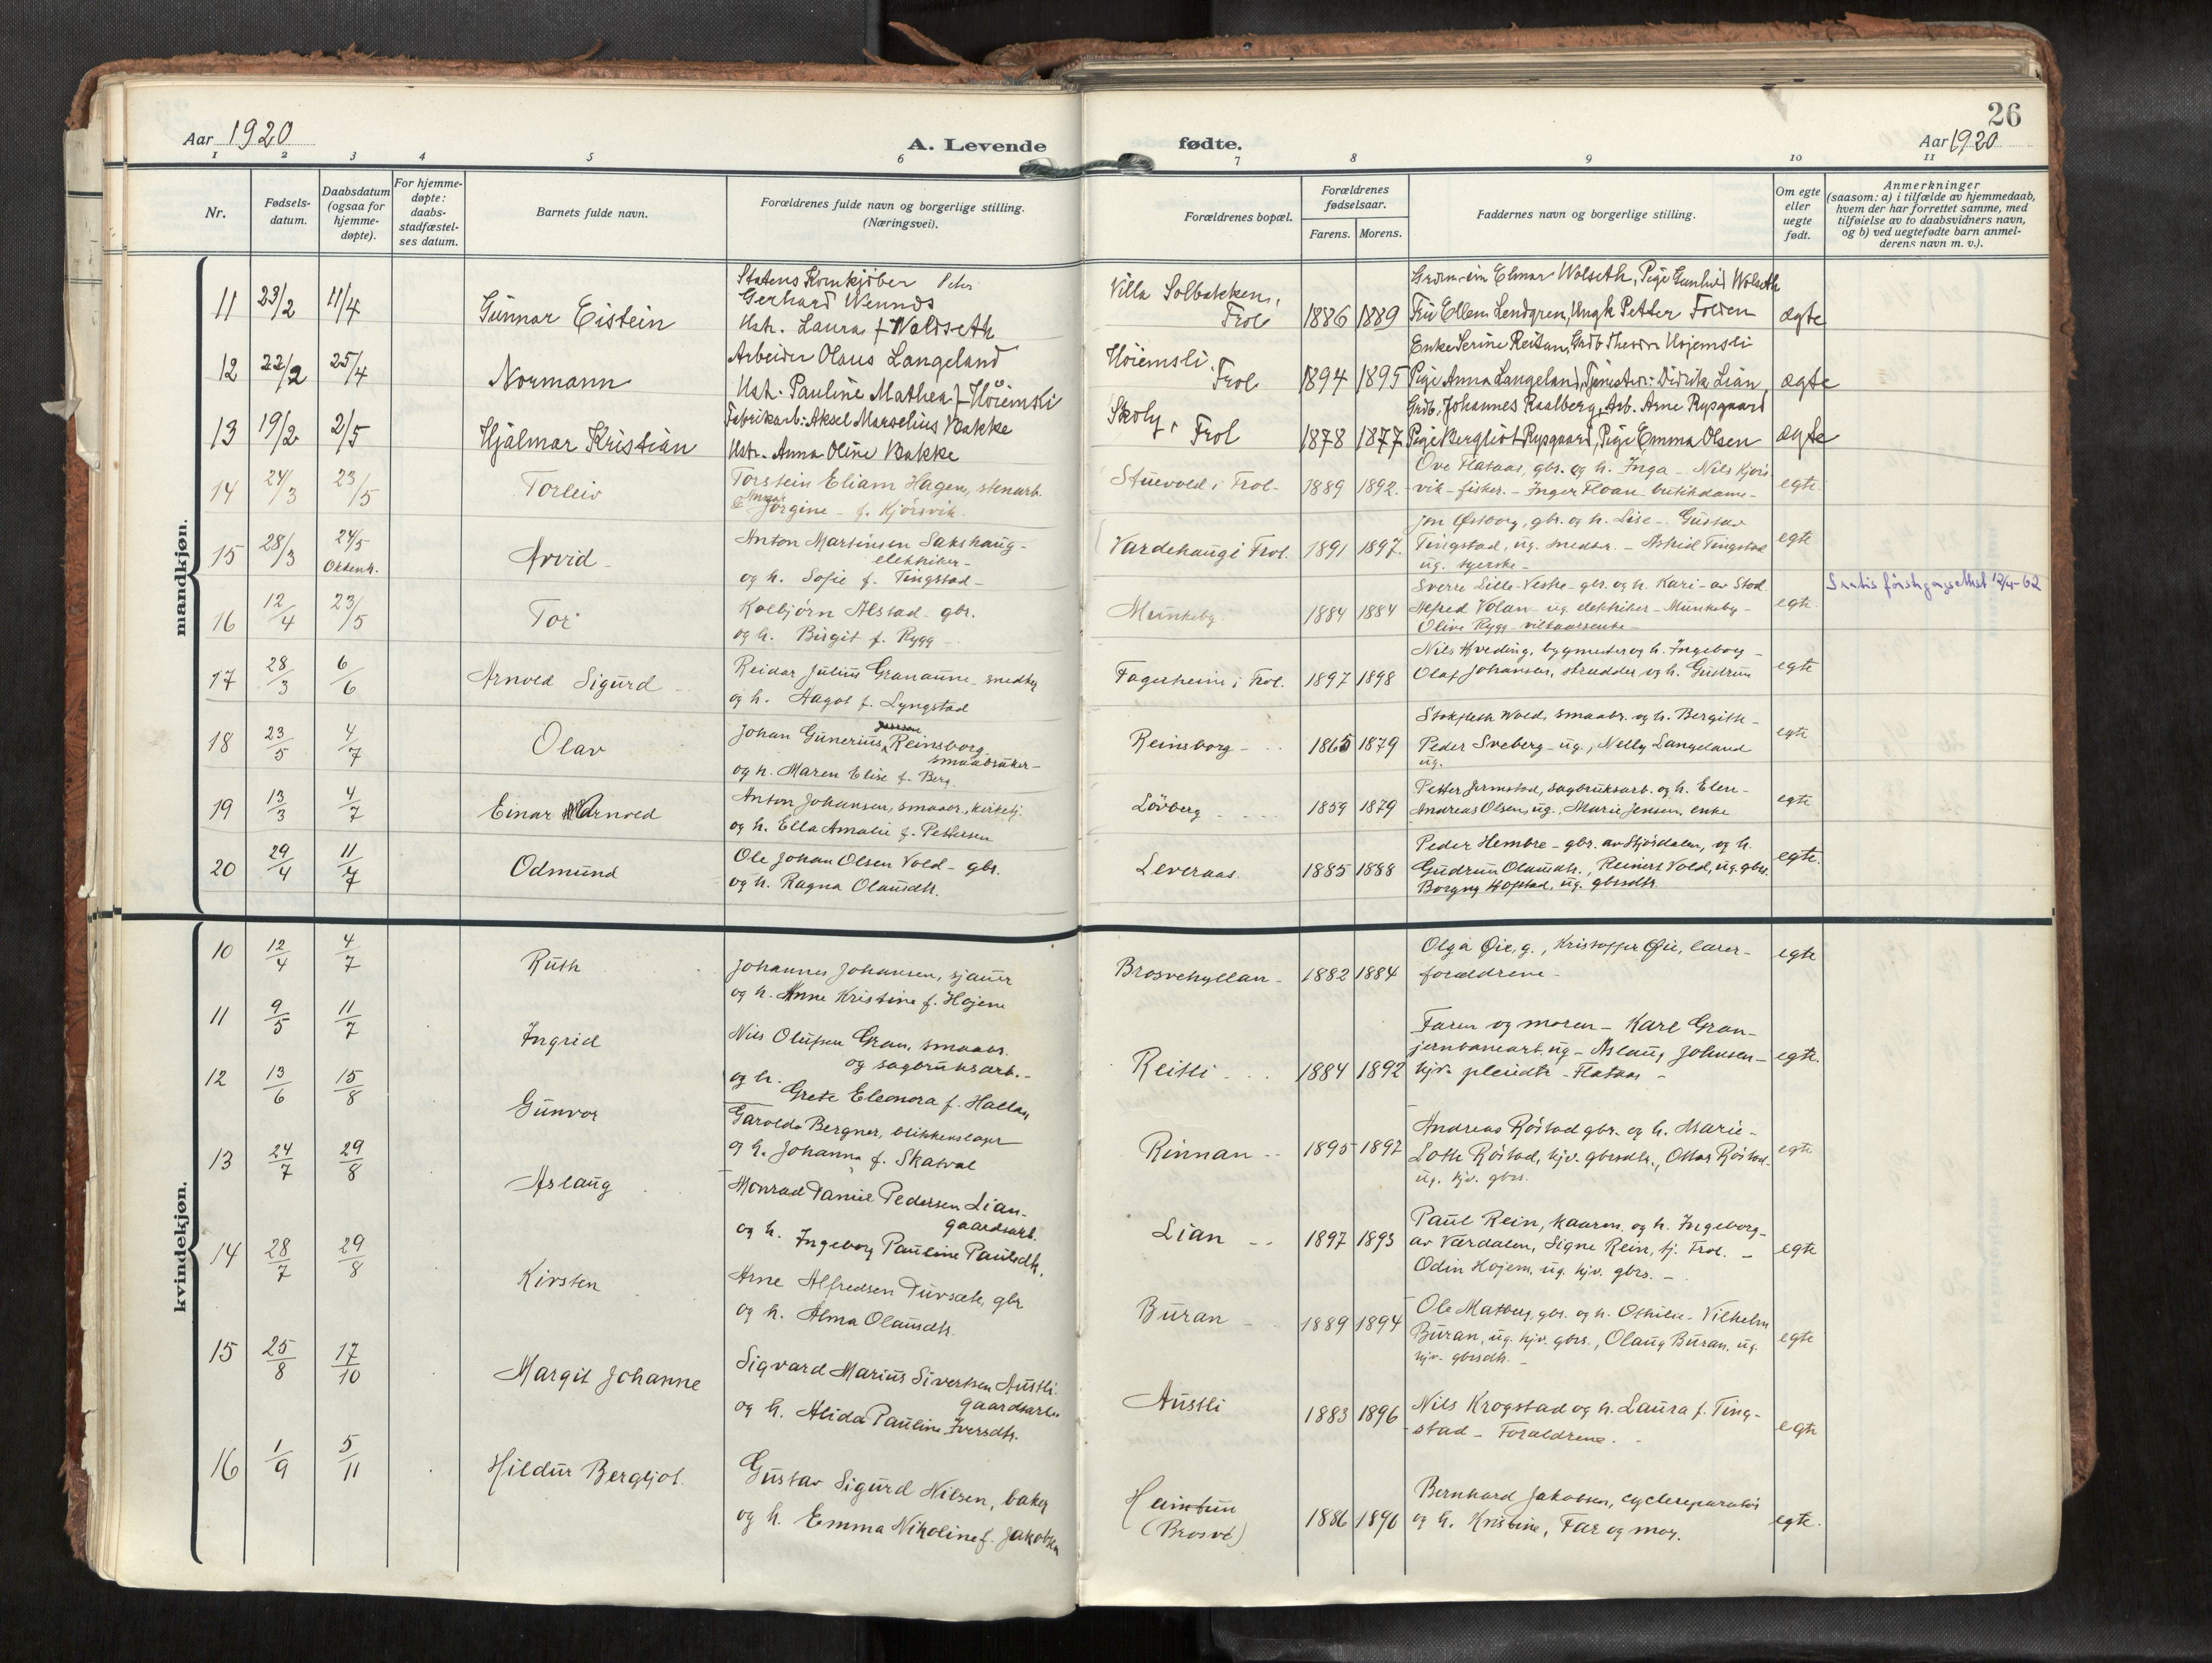 26
Aar 1920
A. Levende
fødte.
Aar 1920
1 2 3 4 5 6 7 8 9 10 11
Nr.
Fødsels-
datum.
Daabsdatum
(ogsaa for
hjemme-
døpte).
For hjemme-
døpte:
daabs-
stadfæstel-
ses datum.
Barnets fulde navn.
Forældrenes fulde navn og borgerlige stilling.
(Næringsvei).
Forældrenes bopæl.
Forældrenes
fødselsaar.
Farens. Morens.
Faddernes navn og borgerlige stilling.
Om egte
eller
uegte
født.
Anmerkninger
(saasom: a) i tilfælde av hjemmedaab,
hvem der har forrettet samme, med
tilføielse av to daabsvidners navn,
og b) ved uegtefødte barn anmel-
derens navn m. v.).
mandkjøn.
11 23/2 11/4 Gunnar Eistein
Statens Kornkjøber Peter
Gerhard Wennes
Hstr. Laura f Woldseth
Villa Solbakken,
Frol
1886 1889
Elmar Wolseth, Pige Gunhild Wolseth
Fru Ellen Lendgren, Ungk Petter Folden
ægte
12 22/2 25/4 Normann
Arbeider Olaus Langeland
Hstr. Pauline Mathea f Höiemsli
Höiemsli
Frol
1894 1895
Enke Serine Reitan, Grdb Theodor Hojemsli
Pige Anna Langeland, Didrik Lian
ægte
13 19/2 2/5 Hjalmar Kristian
Fabrikarb: Aksel Marselius Bakke
Hstr. Anna Oline Bakke
Skoly, Frol
1878 1877
Grdb. Johannes Raalberg, Arb. Arne Rypgaard
Pige Bergliot Rypgaard, Pige Emma Olsen
ægte
14 24/3 23/5 Torleiv
Torstein Eliam Hagen, stenarb.
Jørgine - f. Kjörsvik.
Stuevold i Frol.
1889 1892.
Ove Flataas, gbr. og h. Inga - Nils Kjörs
vik - fisker. - Inger Floan butikdame -
egte.
15 28/3 24/5 Arvid
Anton Martinsen Sakshaug -
elektriker -
og h. Sofie f. Tingstad -
Vardehaug i Frol.
1891 1897.
Jon Østborg, gbr. og h. Lise - Gustav
Tingstad, ug. snedkr. - Astrid Tingstad
ug. hjerske -
egte
16 12/4 23/5 Tor
Kolbjörn Alstad - gbr.
og h. Birgit f. Rygg -
Munkeby
1884 1884
Sverre Lille-Veske - gbr. og h. Kari - av Stod.
Alfred Volan - ug. elektriker - Munkeby -
Olive Rygg - vilkaarsenke -
egte.
12/4-62
17 28/3 6/6 Arnold Sigurd
Reidar Julius Granaune - snedker
og h. Aagot f. Lyngstad
Fagerheim i Frol.
1897 1898
Nils Hveding, bygmester og h. Ingeborg -
Olaf Johansen, skrædder og h. Gudrun
egte
18 23/5 4/7 Olav
Johan Gunerius Reinsborg
smaabruker -
og h. Maren Elise f. Berg.
Reinsborg -
1865 1879
Stokfleth Wold, smaabr. og h. Bergitte -
Peder Sveberg - ug., Nelly Langeland
ug.
egte
19 13/3 4/7 Einar Arnold
Anton Johansen, smaabr., kirketj.
og h. Ella Amalie f. Pettersen
Lövberg
1859 1879
Petter Jermstad, sagbruksarb. og h. Elen -
Andreas Olsen, ug., Marie Jensen, enke
egte
20 29/4 11/7 Odmund
Ole Johan Olsen Vold - gbr.
og h. Ragna Olausdtr.
Leveraas.
1885 1888
Peder Hembre - gbr. av Stjørdalen, og h.
Gudrun Olausdtr., Reinert Vold, ug. gbrs.
Borgny Hopstad, ug. gbrsdtr.
egte.
kvindekjøn.
10 12/4 4/7 Ruth
Johannes Johansen, sjauer
og h. Anne Kristine f. Hojem
Brosvehyllan -
1882 1884
Olga Øie, g., Kristoffer Øie, lærer -
forældrene -
egte
11 9/5 11/7 Ingrid
Nils Olufsen Gran, smaabr.
og sagbruksarb. -
og h. Grete Eleonora f. Hallan
Reitli
1884 1892
Faren og moren - Karl Gran -
jernbanearb. ug - Aslaug Johnsen -
hjv. pleiedtr. - Flataas -
egte.
12 13/6 15/8 Gunvor
Garolds Bergner, blikkenslager
og h. Johanna f. Skatval
Rinnan
1895 1897
Andreas Röstad gbr. og h. Marie -
Lotte Röstad, hjv. gbrsdtr., Ottar Röstad -
ug. hjv. gbrs.
egte
13 24/7 29/8 Aslaug
Monrad Daniel Pedersen Lian -
gaardsarb.
og h. Ingeborg Pauline Paulsdtr.
Lian
1897 1893
Paul Rein, kaarm. og h. Ingeborg -
av Værdalen, Signe Rein, tj. Frol. -
Odin Hojem, ug. hjv. gbrs. -
egte
14 28/7 29/8 Kirsten
Arne Alfredsen Tuvsæte, gbr
og h. Alma Olausdtr.
Buran
1889 1894
Ole Matberg, gbr. og h. Othilie - Vilhelm
Buran, ug. hjv. gbrs., Olaug Buran, ug.
hjv. gbrsdtr. -
egte
15 25/8 17/10 Margit Johanne
Sigvard Marius Sivertsen Austli
gaardsarb.
og h. Alida Pauline Iversdtr.
Austli
1883 1896
Nils Krogstad og h. Laura f. Ting-
stad - Forældrene.
egte
16 1/9 5/11 Hildur Bergljot
Gustav Sigurd Nilsen, baker
og h. Emma Nikoline f. Jakobsen
Heimtun
(Brosve)
1886 1890
Bernhard Jakobsen, cyclereparatör
og h. Kristine, Far og mor.
egte.